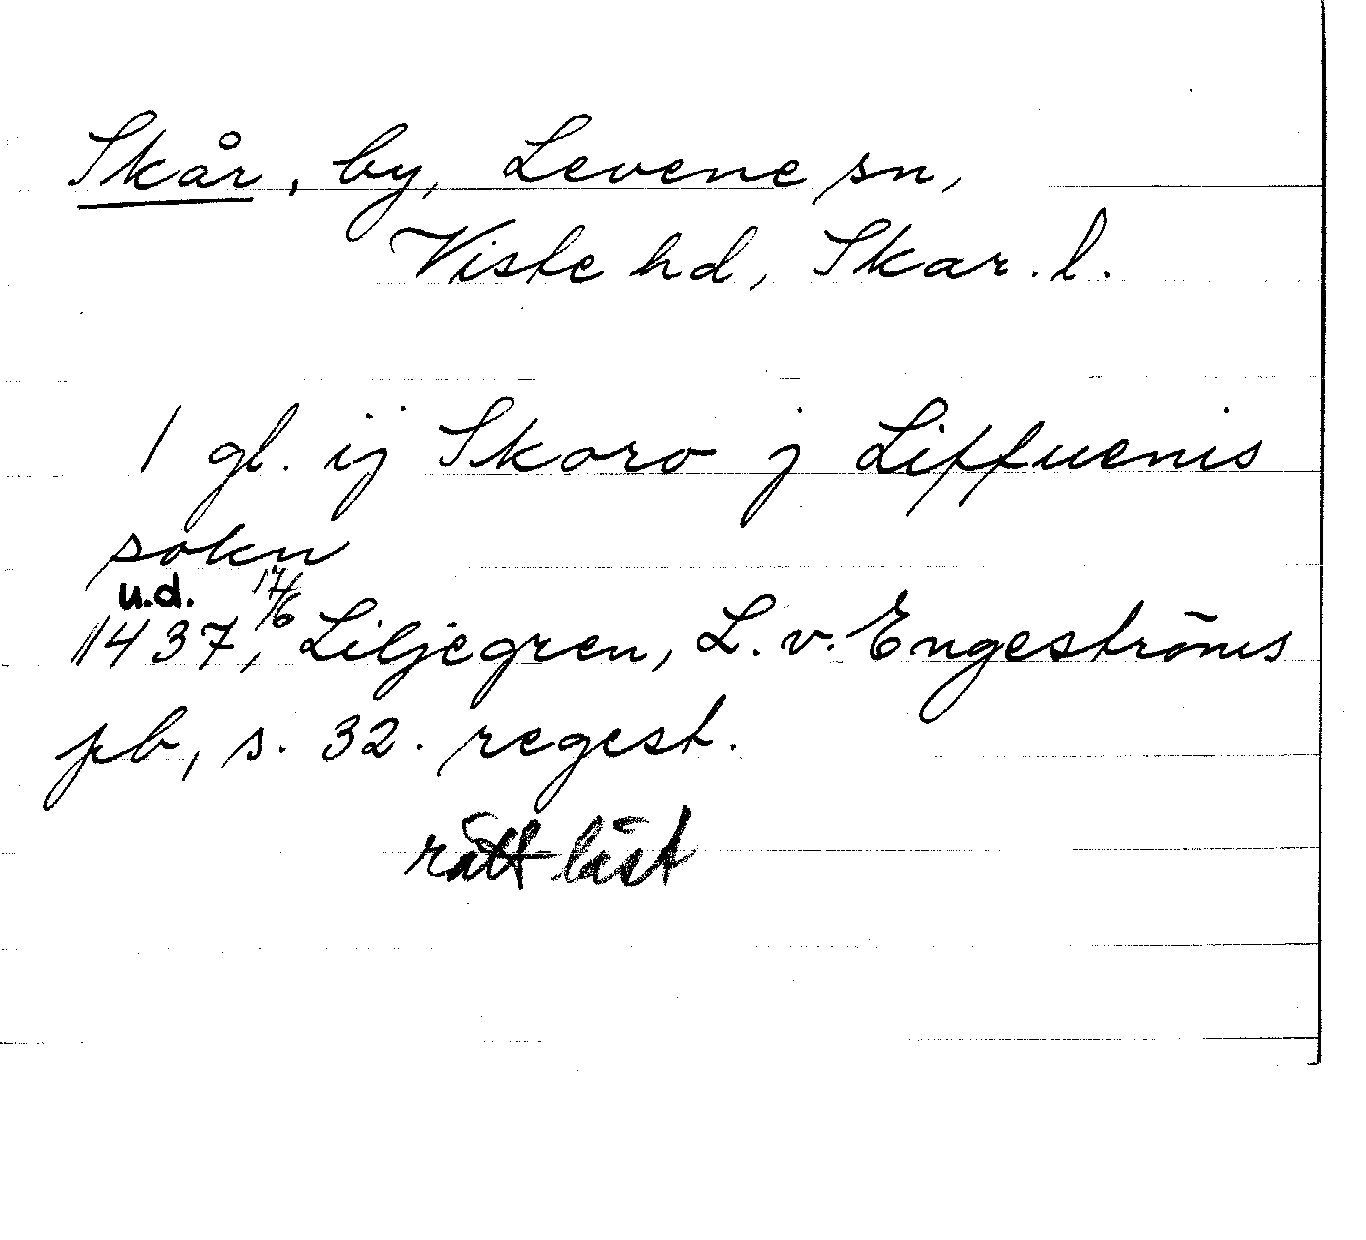 Skår, by, Levene sn,
Viste hd, Skar. l.
1 gl. ij Skoro j Liffuenis
sokn
u.d. 17/6
1437, Liljegren, L. v. Engeströms
pb, s. 32. regest.
rätt läst